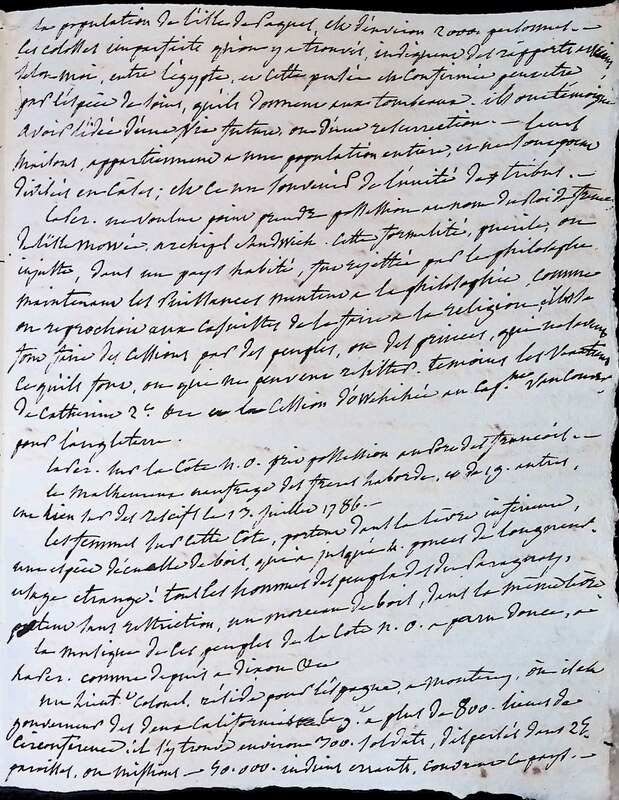 La population de l'isle de Paques, est d'environ 2000 personnes. —
les colosses imparfaits qu'on y a trouvés, indiquent des rapports
selon moi, entre l'égypte, et cette pensée est confirmée peut etre
par l'espèce de soins, qu'ils donnent aux tombeaux. ils ont témoigné
avoir l'idée d'une vie future, ou d'une resurrection. — leurs
maisons, appartiennent a une population entiere, et ne sont point
divisées en cases; est ce un souvenir de l'unité des tribus. —
Lapér. ne voulut point prendre possession au nom du Roi de france
de l'isle Mowée, archipel Sandwich. cette formalité, puerile, ou
injuste, dans un pays habité, fut rejettée par le philosophe
maintenant les Puissances mentent a la philosophie, comme
on reprochoit aux casuistes de le faire a la religion, elles se
font faire des cessions par des peuples, ou des princes, qui ne savent
ce qu'ils font, ou qui ne peuvent resister. temoins les
de Catherine 2e. &c la Cession d'Owhihée au Capne. Vancouver
pour l'angleterre.
Lapér. sur la Côte N. O. prit possession au Port des francois. —
le malheureux naufrage des freres Laborde, et de 19. autres,
eut lieu sur des rescifs le 13. juillet 1786. —
les femmes sur cette Côte, portent dans la lèvre inférieure,
une espèce d'écuelle de bois, qui a jusqu'à pouces de longueur.
usage etrange! tous les hommes des peuplades du Paraguay,
portent sans restriction, un morceau de bois, dans la même lèvre
la musique de ces peuples de la Cote N. O. a paru douce, a
Lapér. comme depuis a Dixon &ca
un Lieut. Colonel, réside pour l'espagne, a Monterey, où il est
gouverneur des deux Californies. le gt. a plus de 800. lieues de
Circonférence. il s'y trouve environ 300. soldats, dispersés dans 25
paroisses, ou missions — 50.000. indiens errants, couvrent ce pays. —